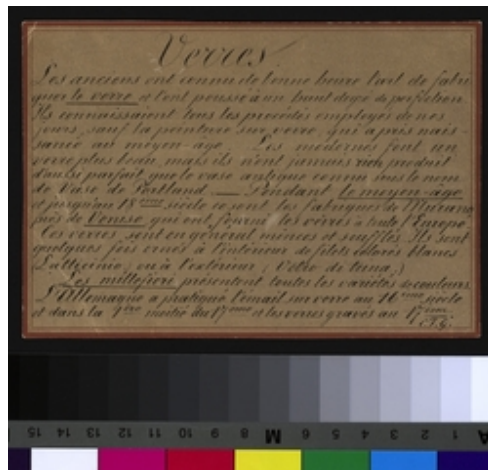 Verres.
Les anciens ont connu de bonne heure l'art de fabri-
quer le verre et l'ont poussé à un haut degré de perfection.
Ils connaissaient tous les procédés employés de nos
jours, sauf la peinture sur verre, qui a pris nais-
sance au moyen-âge. Les modernes font un
verre plus beau, mais ils n'ont jamais rien produit
d'aussi parfait que le vase antique connu sous le nom
de Vase de Portland. — Pendant le moyen-âge
et jusqu'au 18ème siècle ce sont les fabriques de Murano
près de Venise, qui ont fourni les verres à toute l'Europe.
Ces verres sont en général minces et soufflés. Ils sont
quelques fois ornés à l'intérieur de filets colorés blancs
Latticinio, ou à l'extérieur (Vetro di trina.)
Les millefiori présentent toutes les variétés de couleurs.
L'Allemagne a pratiqué l'émail sur verre au 16ème siècle
et dans la 1ère moitié du 17ème et les verres gravés au 17ème
15 14 13 12 11 10 9 8 M 6 5 4 3 2 1 A